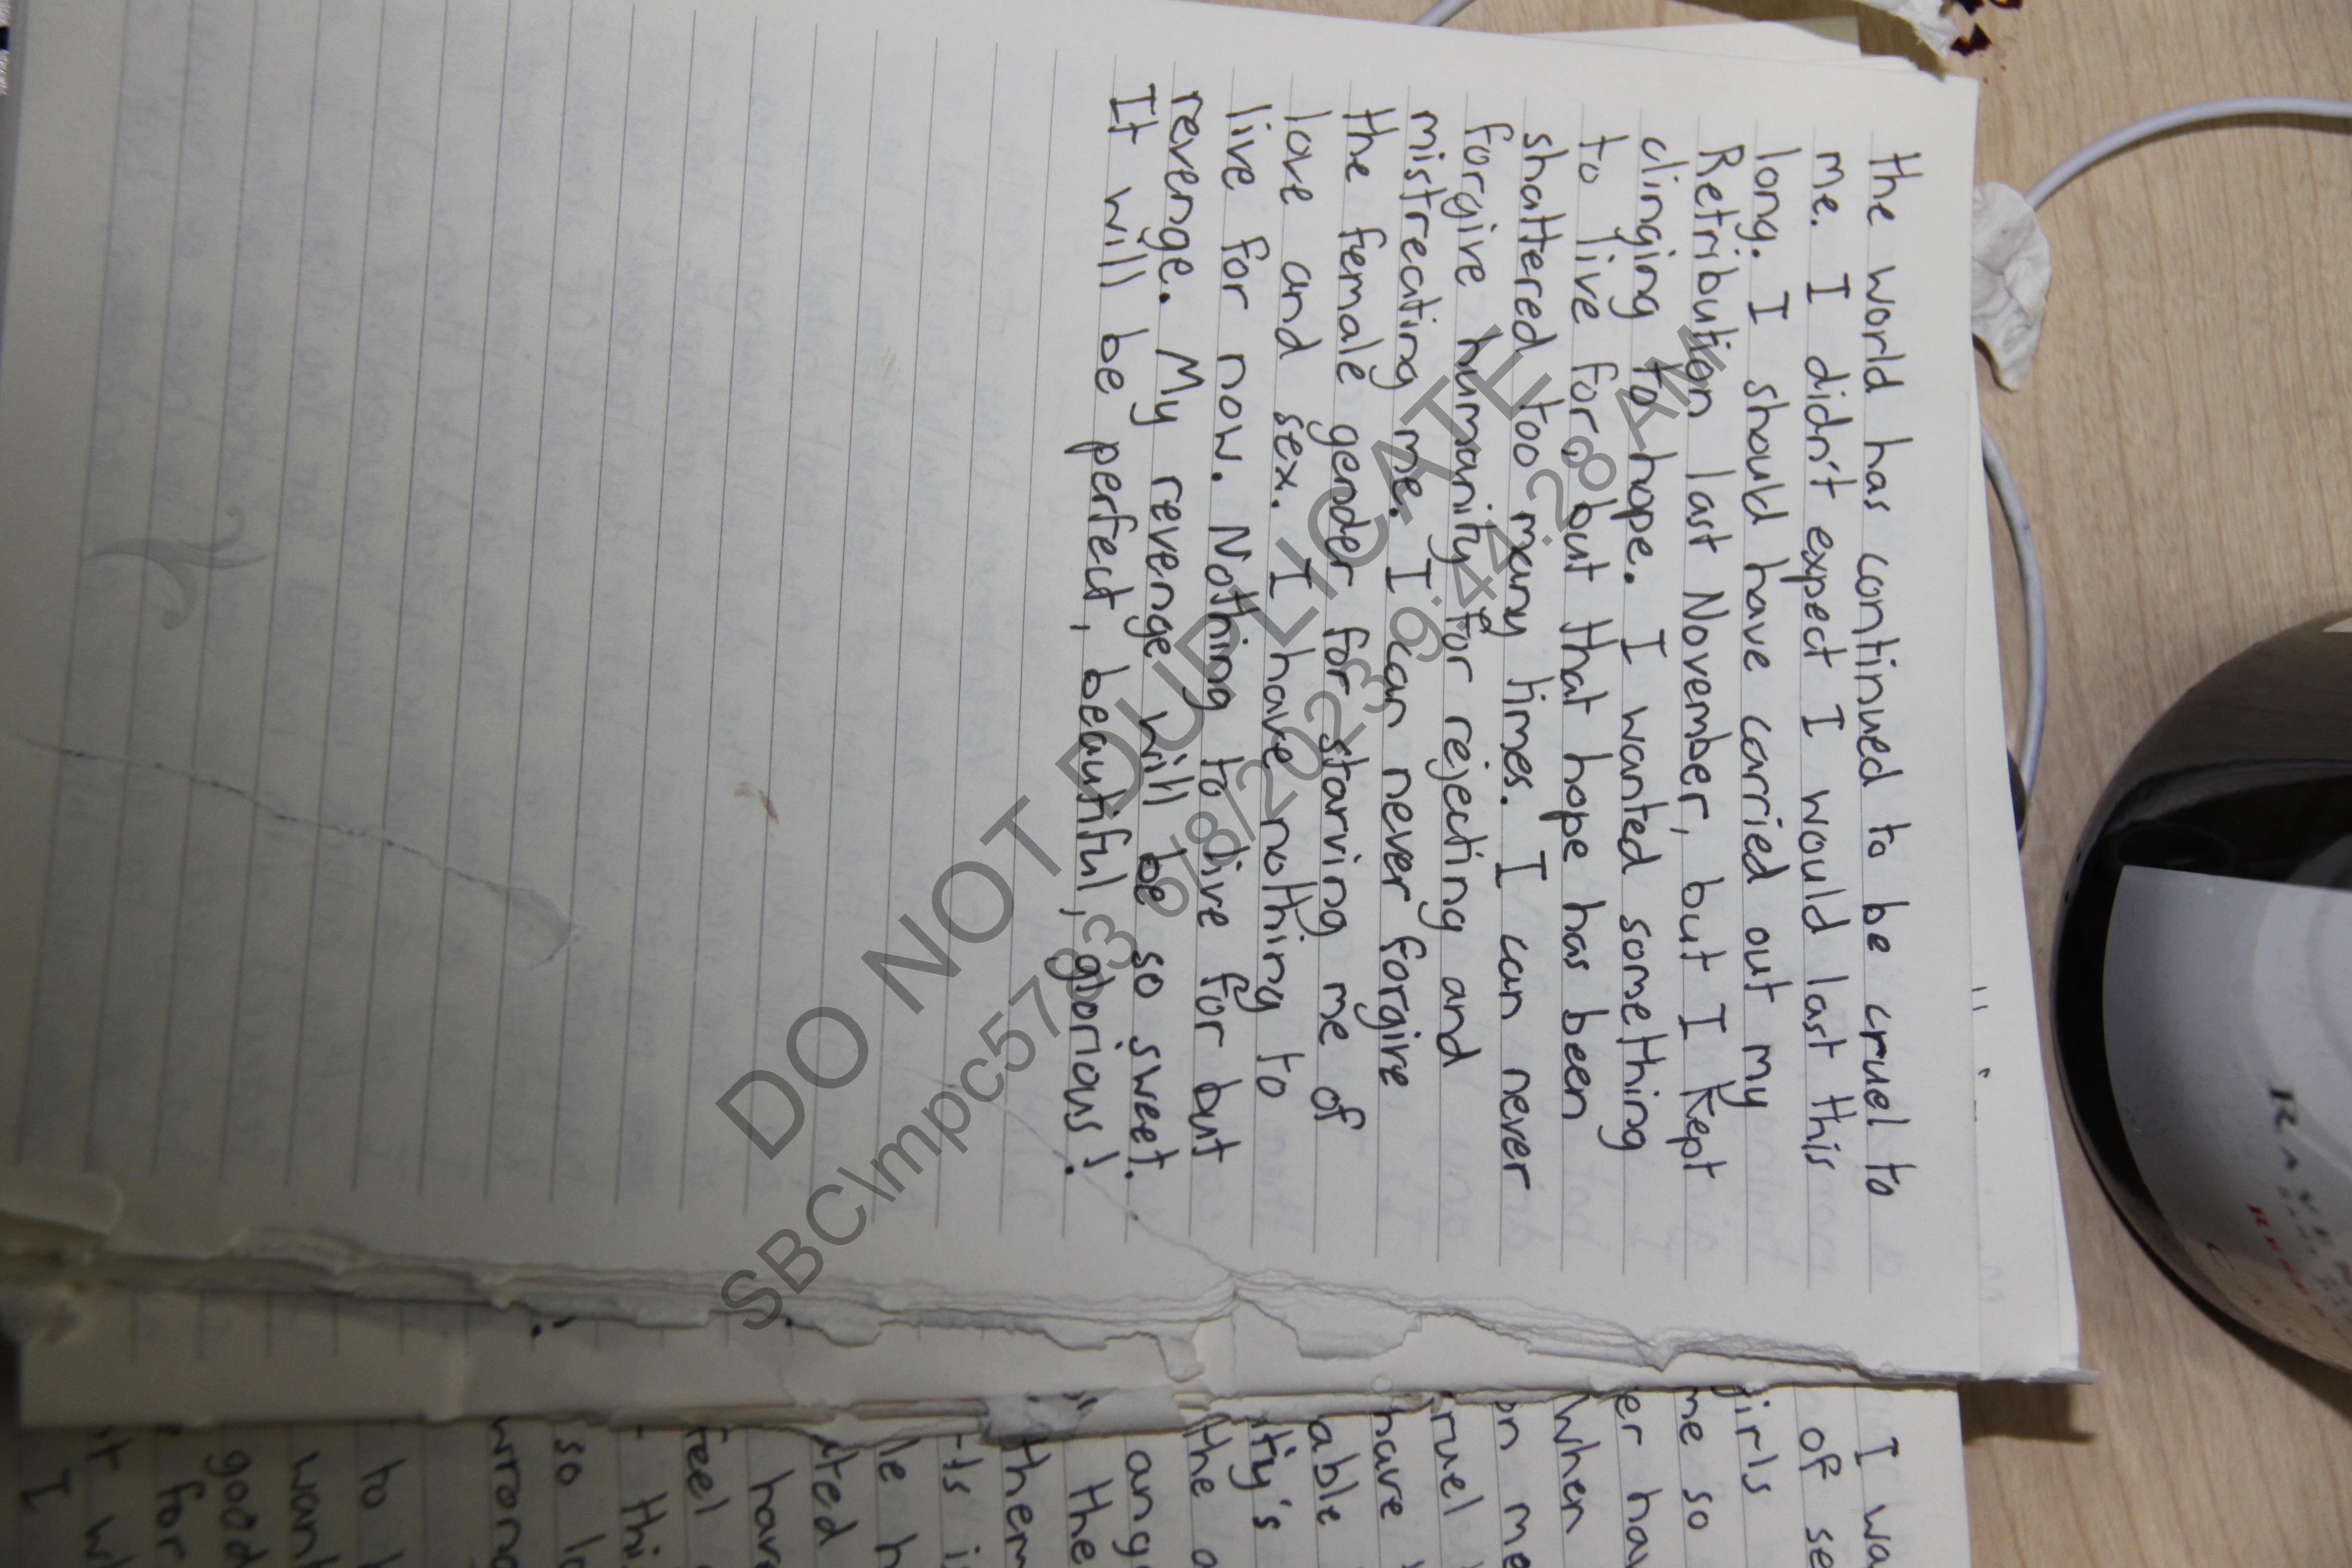 the world has continued to be cruel to
me. I didn't expect I would last this
long. I should have carried out my
Retribution last November, but I kept
clinging to hope. I wanted something
to live for, but that hope has been
shattered too many times. I can never
forgive humanity for rejecting and
mistreating me. I can never forgive
the female gender for starving me of
love and sex. I have nothing to
live for now. Nothing to live for but
revenge. My revenge will be so sweet.
It will be perfect, beautiful, glorious!
DO NOT DUPLICATE
SBC\mpc5783 6/8/2023 9:42:28 AM
I wa
of se
girls
me so
er hav
when
on me
ruel
have
able
ity's
the
ang
the
them
le h
have
feel
thi
so lo
wrong
to
want
good
for
I